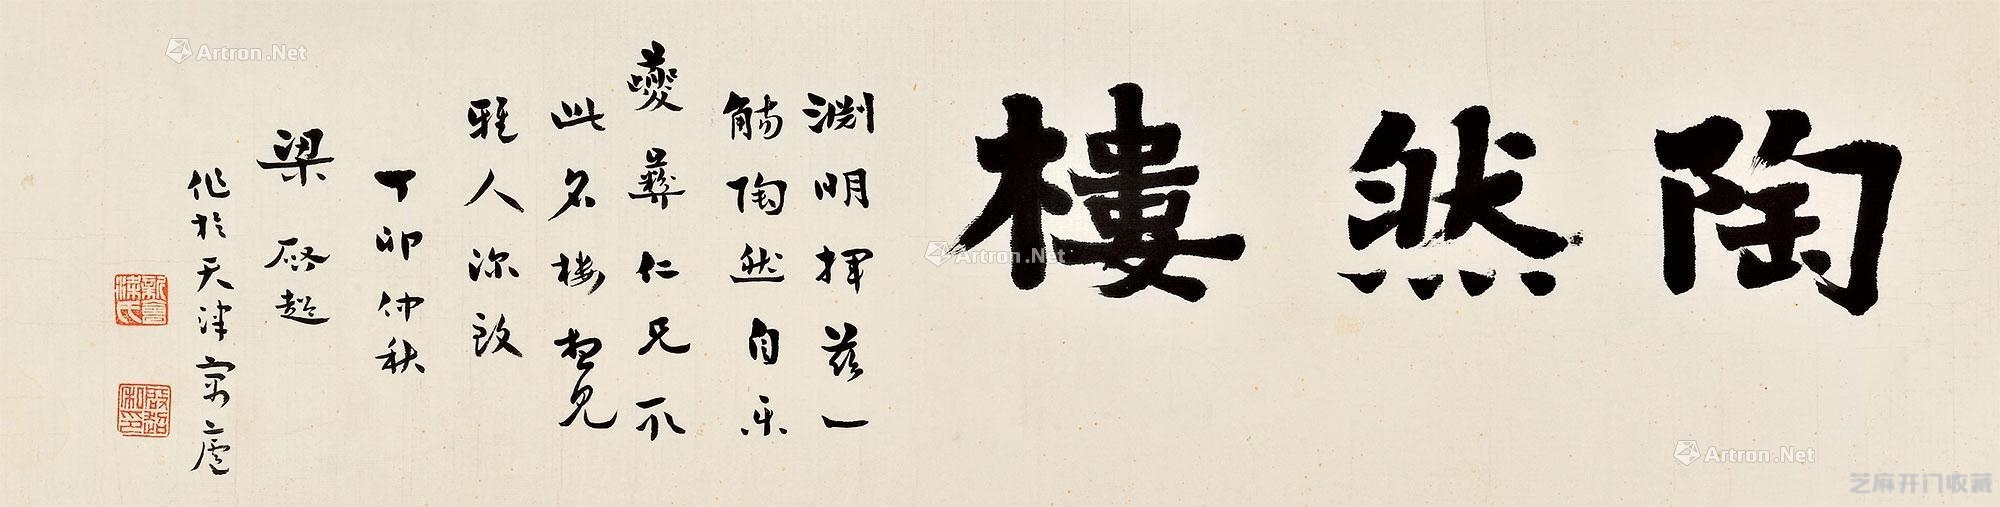 陶然樓
淵明揮茲一
觴陶然自樂
夔彝仁兄
此名樓想見
雅人深致
丁卯仲秋
梁啟超
作於天津寓廬
新會梁氏
啟超私印
Artron.Net
Artron.Net
Artron.Net
芝麻开门收藏